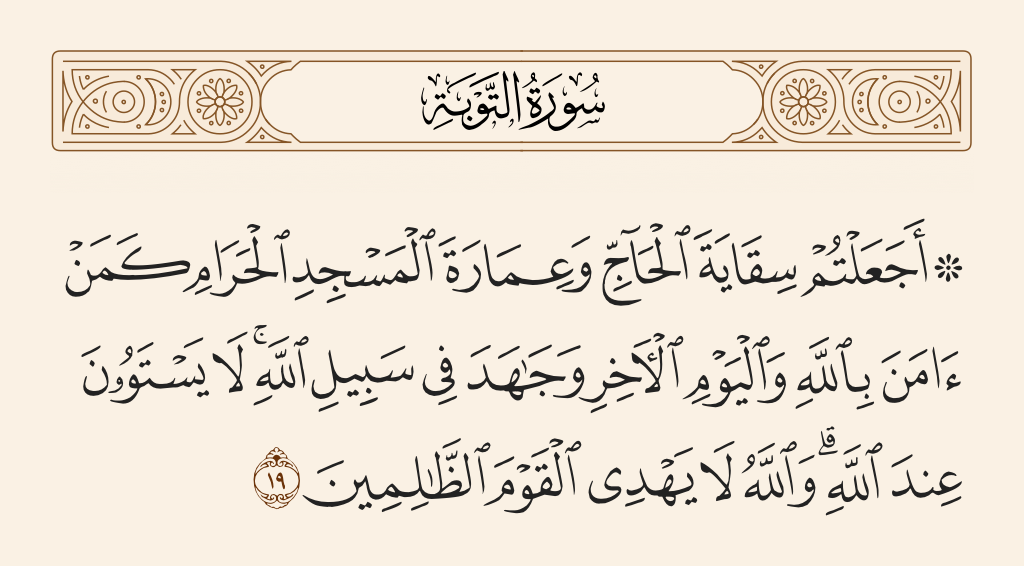 سُورَةُ التَّوْبَةِ
۞ أَجَعَلْتُمْ سِقَايَةَ ٱلْحَآجِّ وَعِمَارَةَ ٱلْمَسْجِدِ ٱلْحَرَامِ كَمَنْ
ءَامَنَ بِٱللَّهِ وَٱلْيَوْمِ ٱلْـَٔاخِرِ وَجَـٰهَدَ فِى سَبِيلِ ٱللَّهِ ۚ لَا يَسْتَوُۥنَ
عِندَ ٱللَّهِ ۗ وَٱللَّهُ لَا يَهْدِى ٱلْقَوْمَ ٱلظَّـٰلِمِينَ ١٩